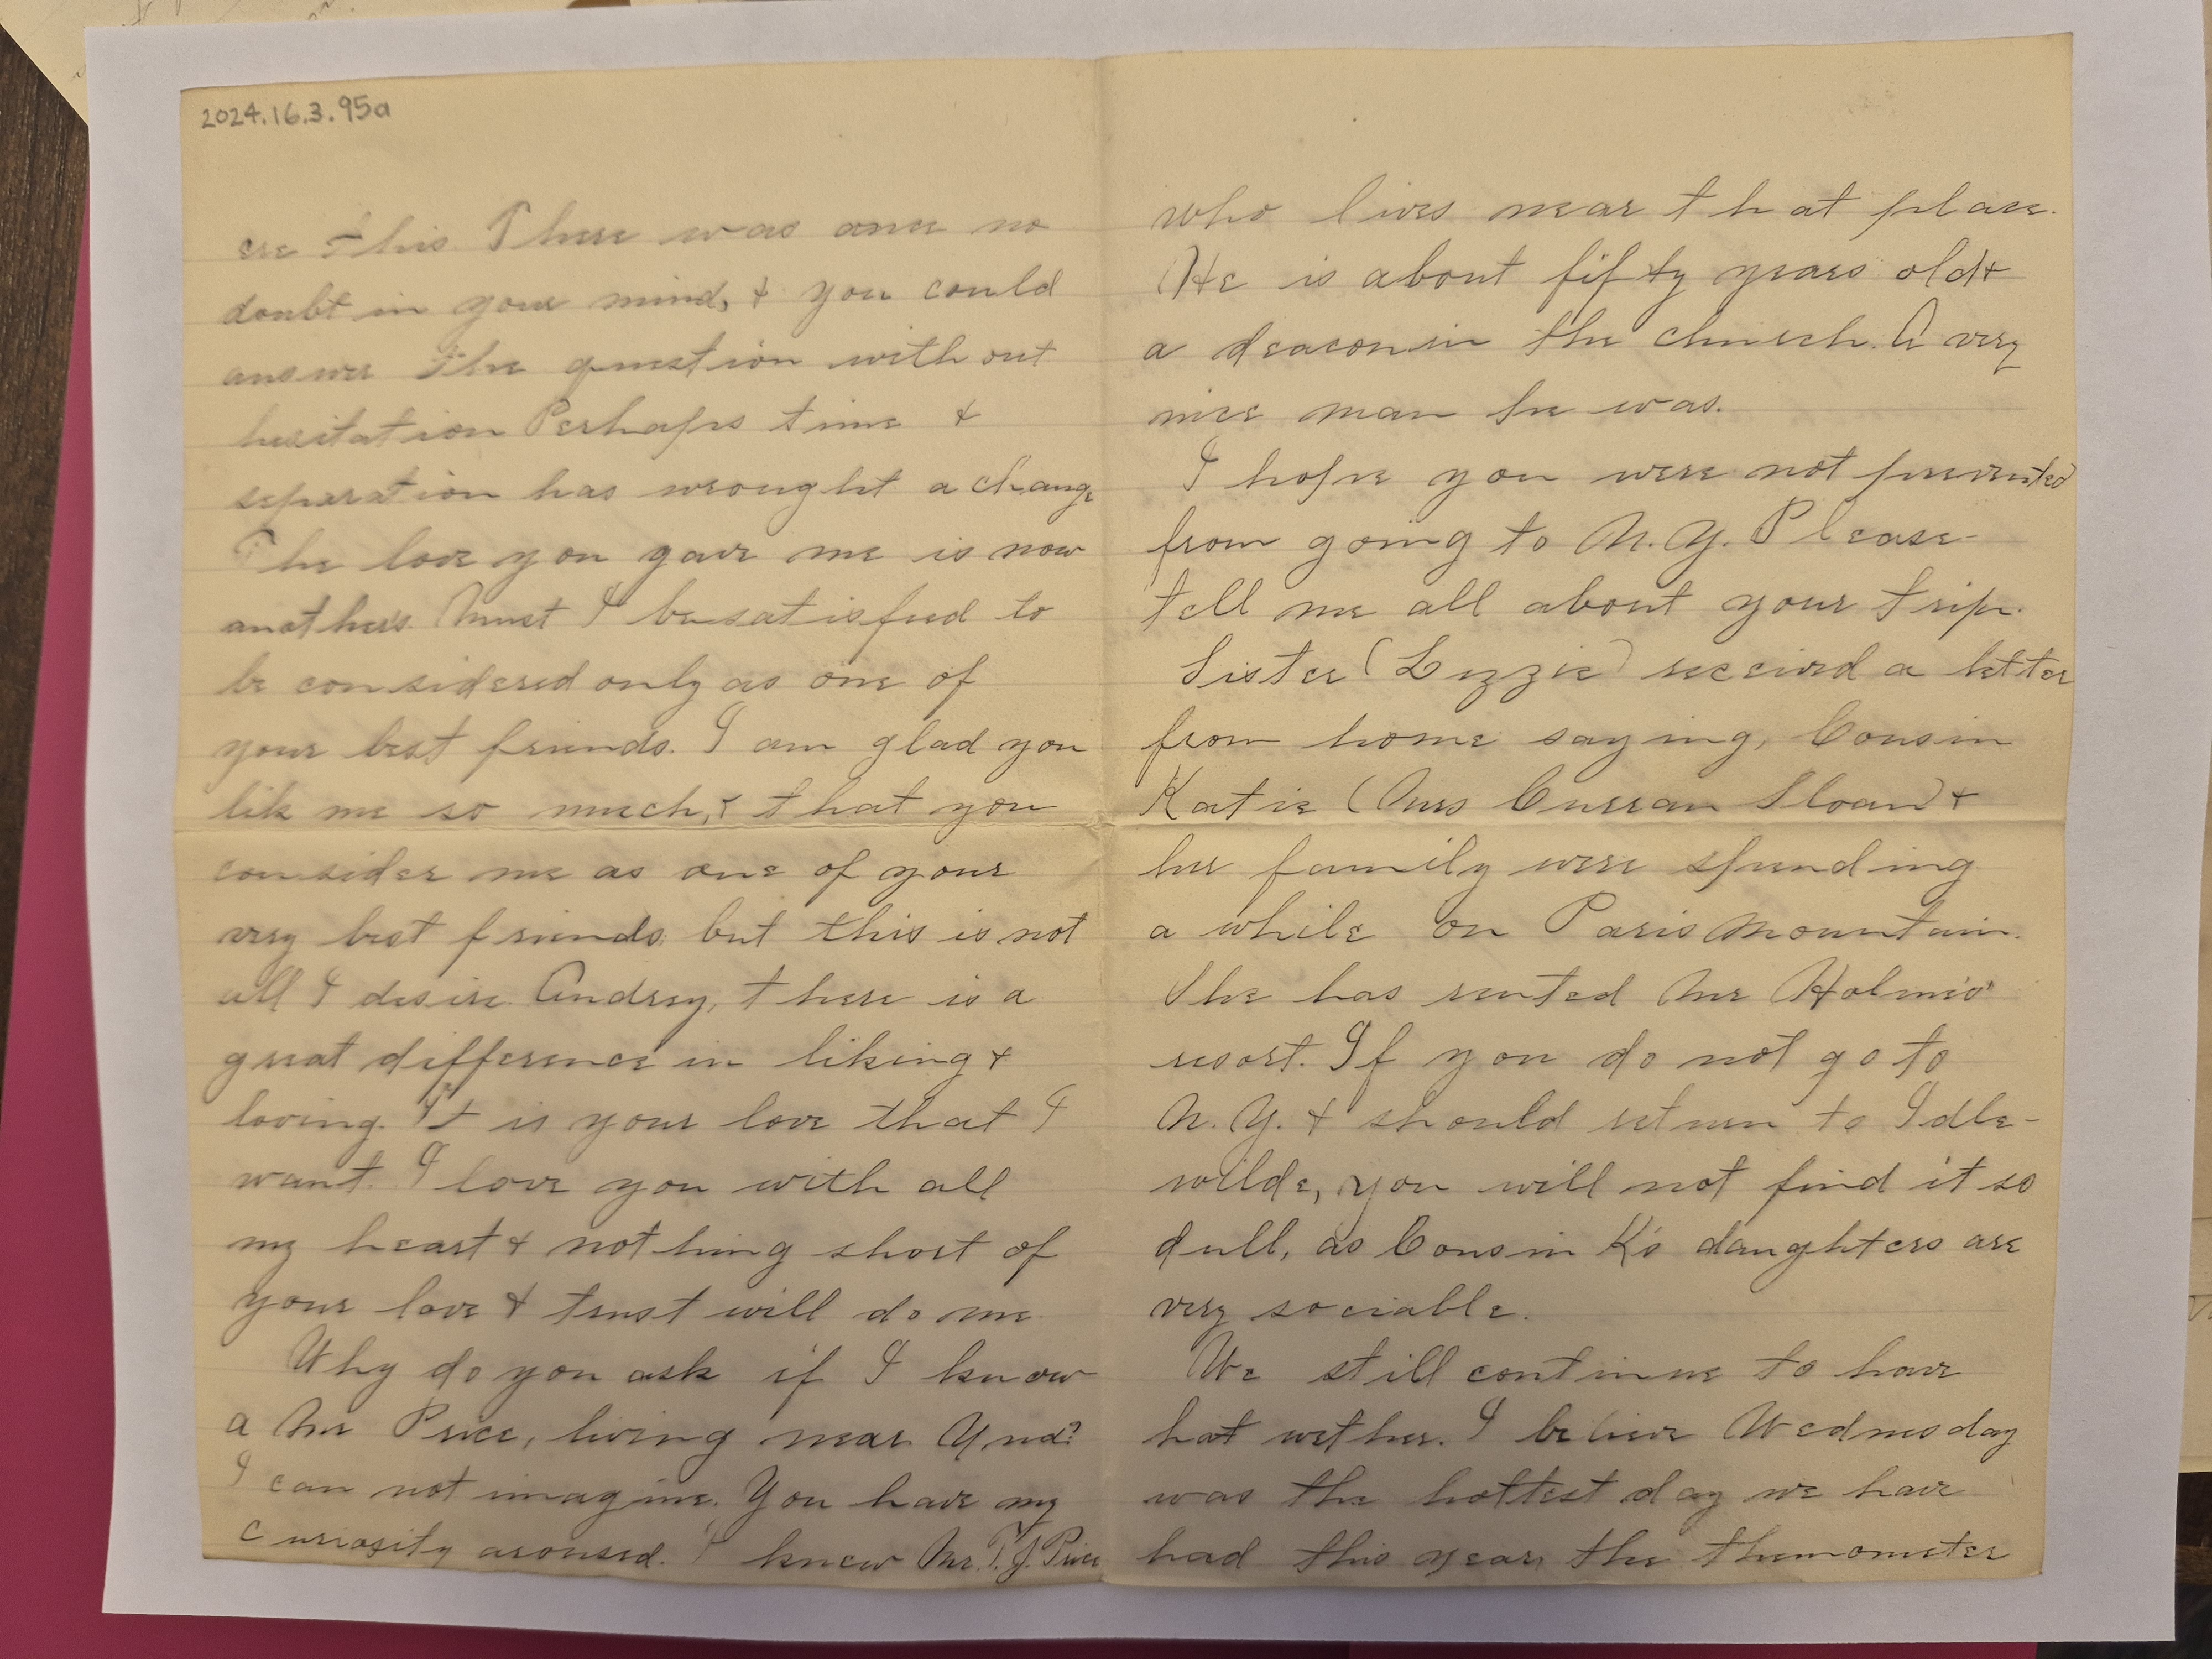 2024.16.3.95a
ere this There was once no
doubt in your mind, & you could
answer the question without
hesitation Perhaps time &
separation has wrought a change
The love you gave me is now
anothers. Must I be satisfied to
be considered only as one of
your best friends. I am glad you
lik me so much, & that you
consider me as one of your
very best friends, but this is not
all I desire Audrey, there is a
great difference in liking &
loving. It is your love that I
want. I love you with all
my heart & nothing short of
your love & trust will do me.
Why do you ask if I know
a Mr Price, living near
I can not imagine. You have my
curiosity aroused. I knew Mr. T. J. Price
who lives near that place.
(He is about fifty years old &
a deacon in the church. A very
nice man he was.
I hope you were not prevented
from going to N.Y. Please
tell me all about your trip.
Sister (Lizzie) received a letter
from home saying, Cousin
Katie (Mrs Curran Sloan) &
her family were spending
a while on Paris Mountain.
She has rented Mr Holmes'
resort. If you do not go to
N.Y. & should return to Idle-
wilde, you will not find it so
dull, as Cousin K's daughters are
very sociable.
We still continue to have
hot wether. I believe Wednesday
was the hottest day we have
had this year, the themometer